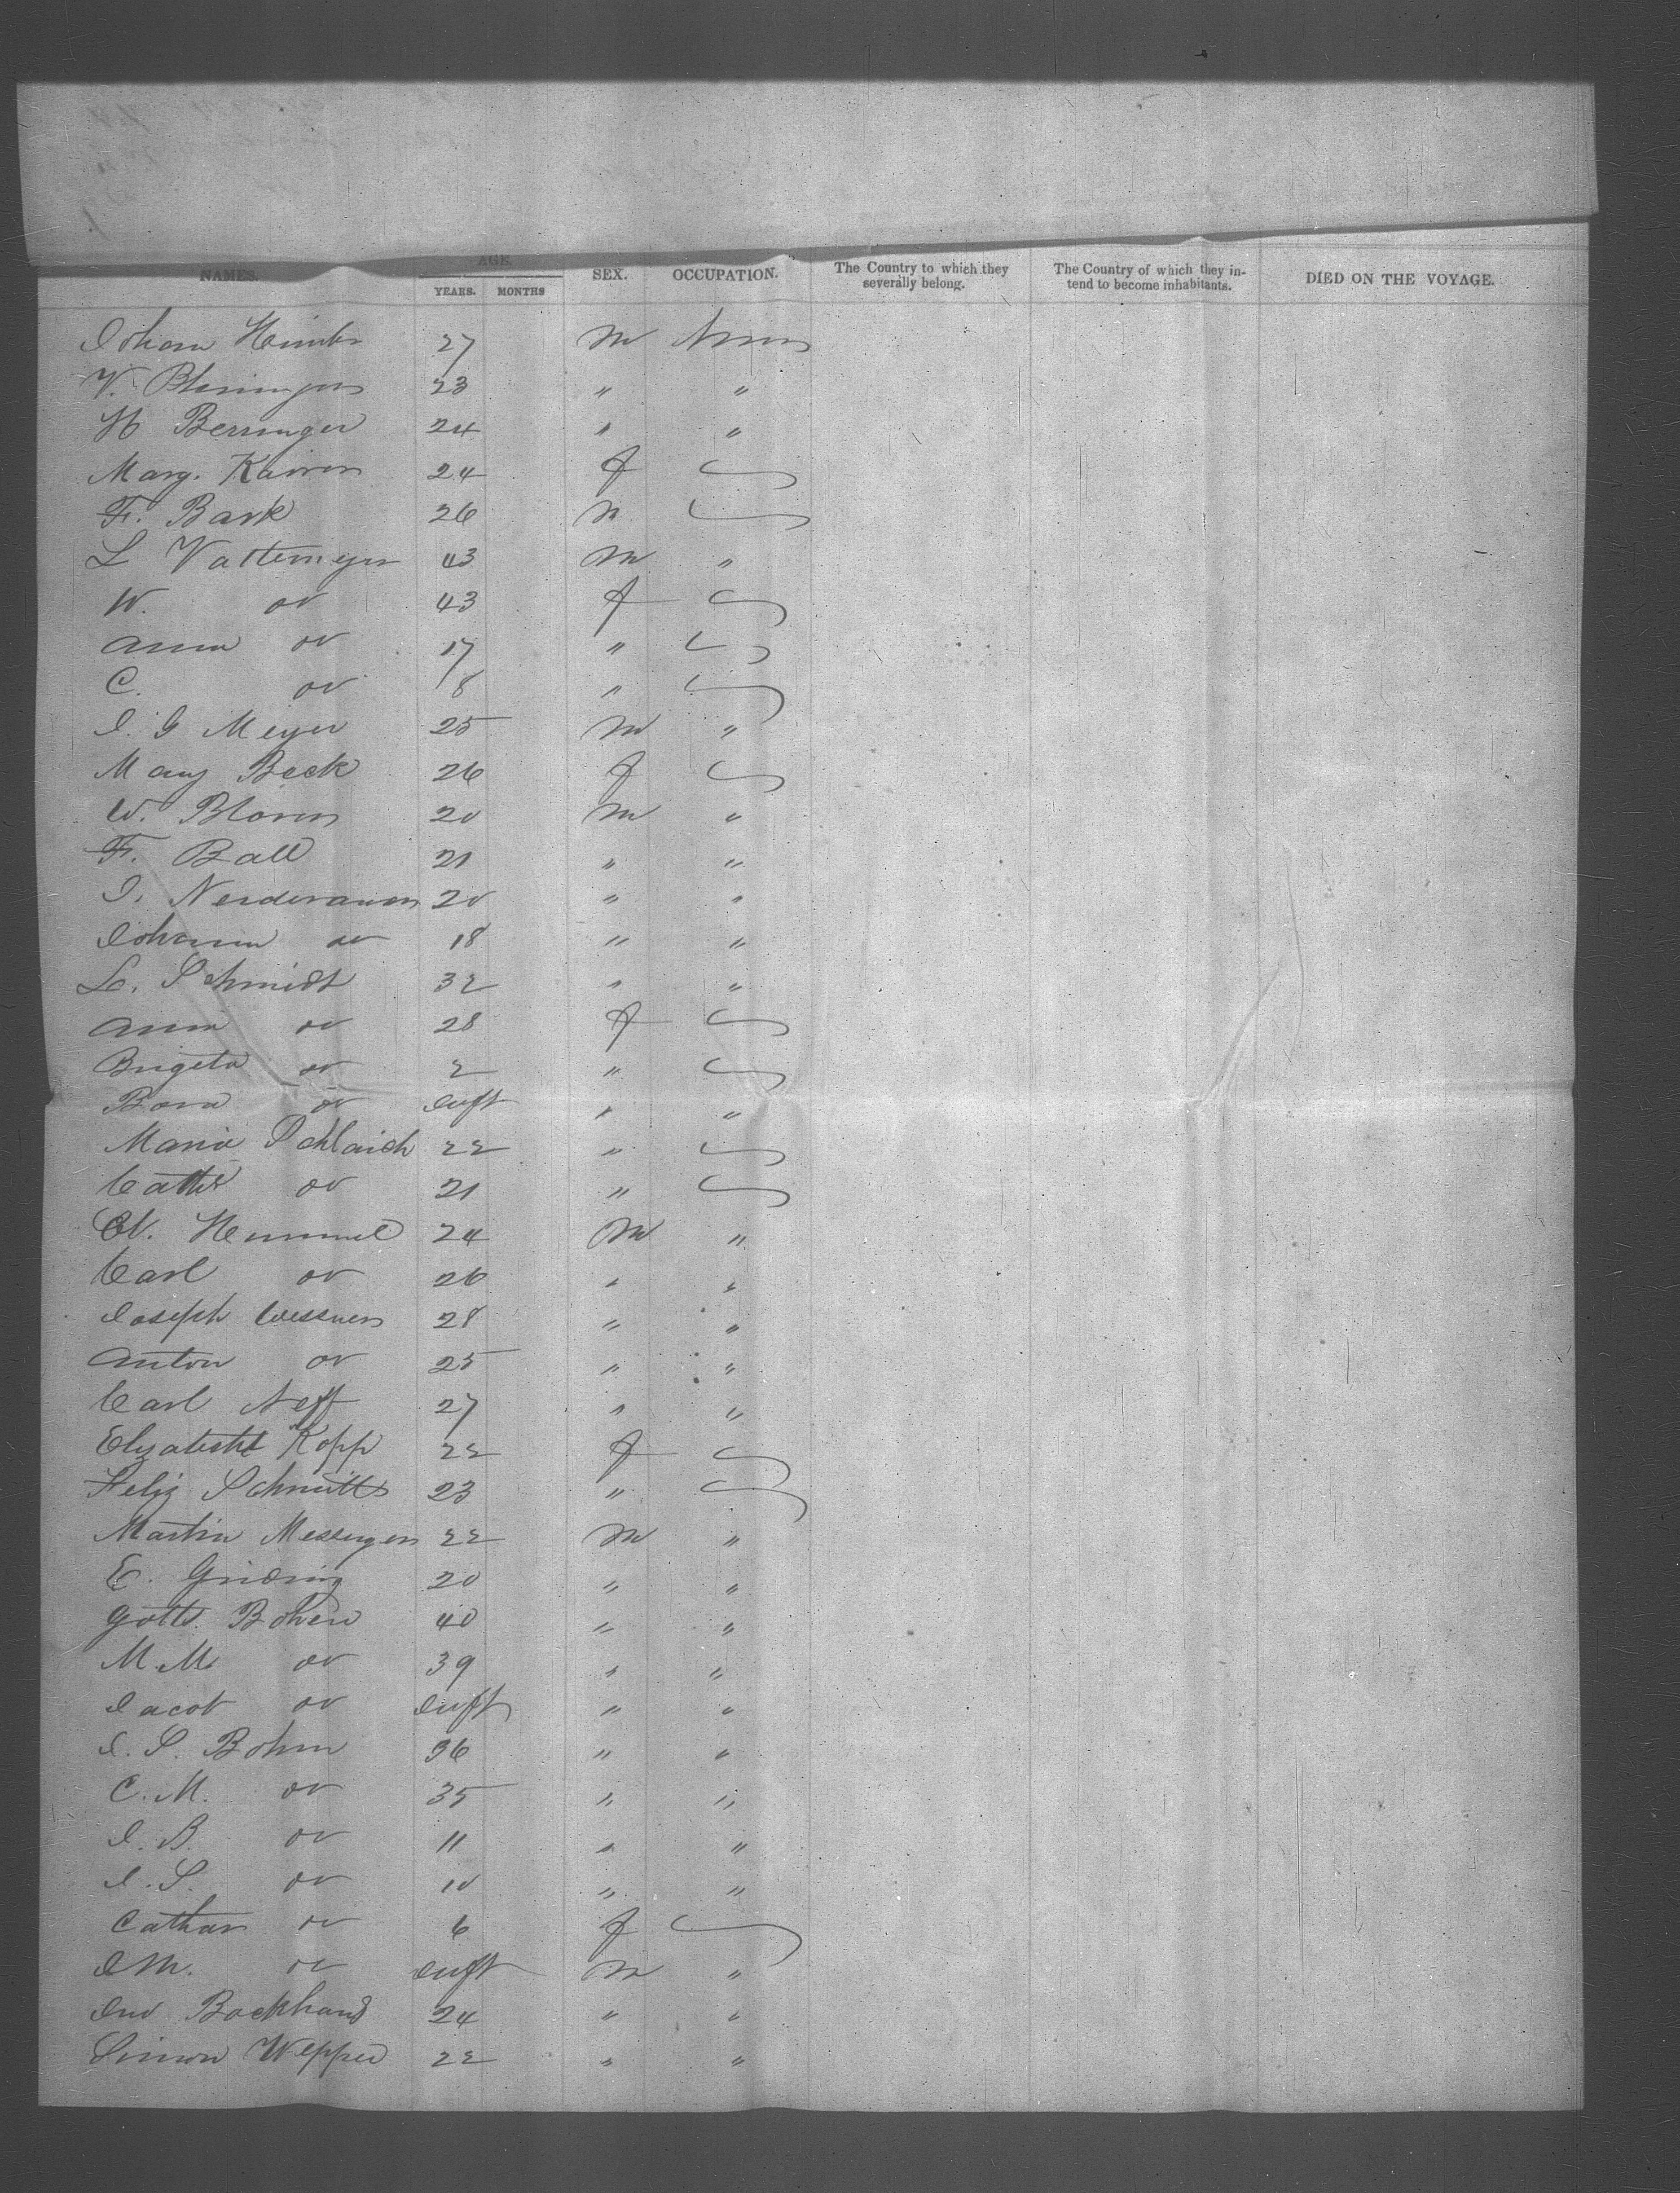 NAMES. AGE. SEX. OCCUPATION. The Country to which they severally belong. The Country of which they intend to become inhabitants. DIED ON THE VOYAGE.
YEARS. MONTHS
Johann 27 M
V. 23 " "
H Berringer 24 " "
Marg. 24 f
F. Bark 26 M
L Vattemeyer 43 M "
W. do 43 f
Anna do 17 "
C. do 8 "
J. G Meyer 25 M "
Mary Beck 26 f
W. 20 M "
F. Ball 21 " "
J. 20 " "
Johann do 18 " "
L. Schmidt 32 " "
Anna do 28 f
Brigeta do 2 "
do Inft " "
Maria Schlaich 22 "
Cath do 21 "
Hemmel 24 M "
Carl do 26 " "
Joseph Wessner 28 " "
Anton do 25 " "
Carl Neff 27 " "
Elizabeth Kopp 22 f
Feliz Schmitt 23 "
Martin Messenger 22 M "
E. 20 " "
Gottl. Bohem 40 " "
M. M. do 39 " "
Jacob do Inft " "
J. S. Bohm 36 " "
C. M. do 35 " "
J. B. do 11 " "
J. S. do 10 " "
Cathar do 6 f
J M. do Inft M "
Backhaus 24 " "
Simon Wepper 22 " "